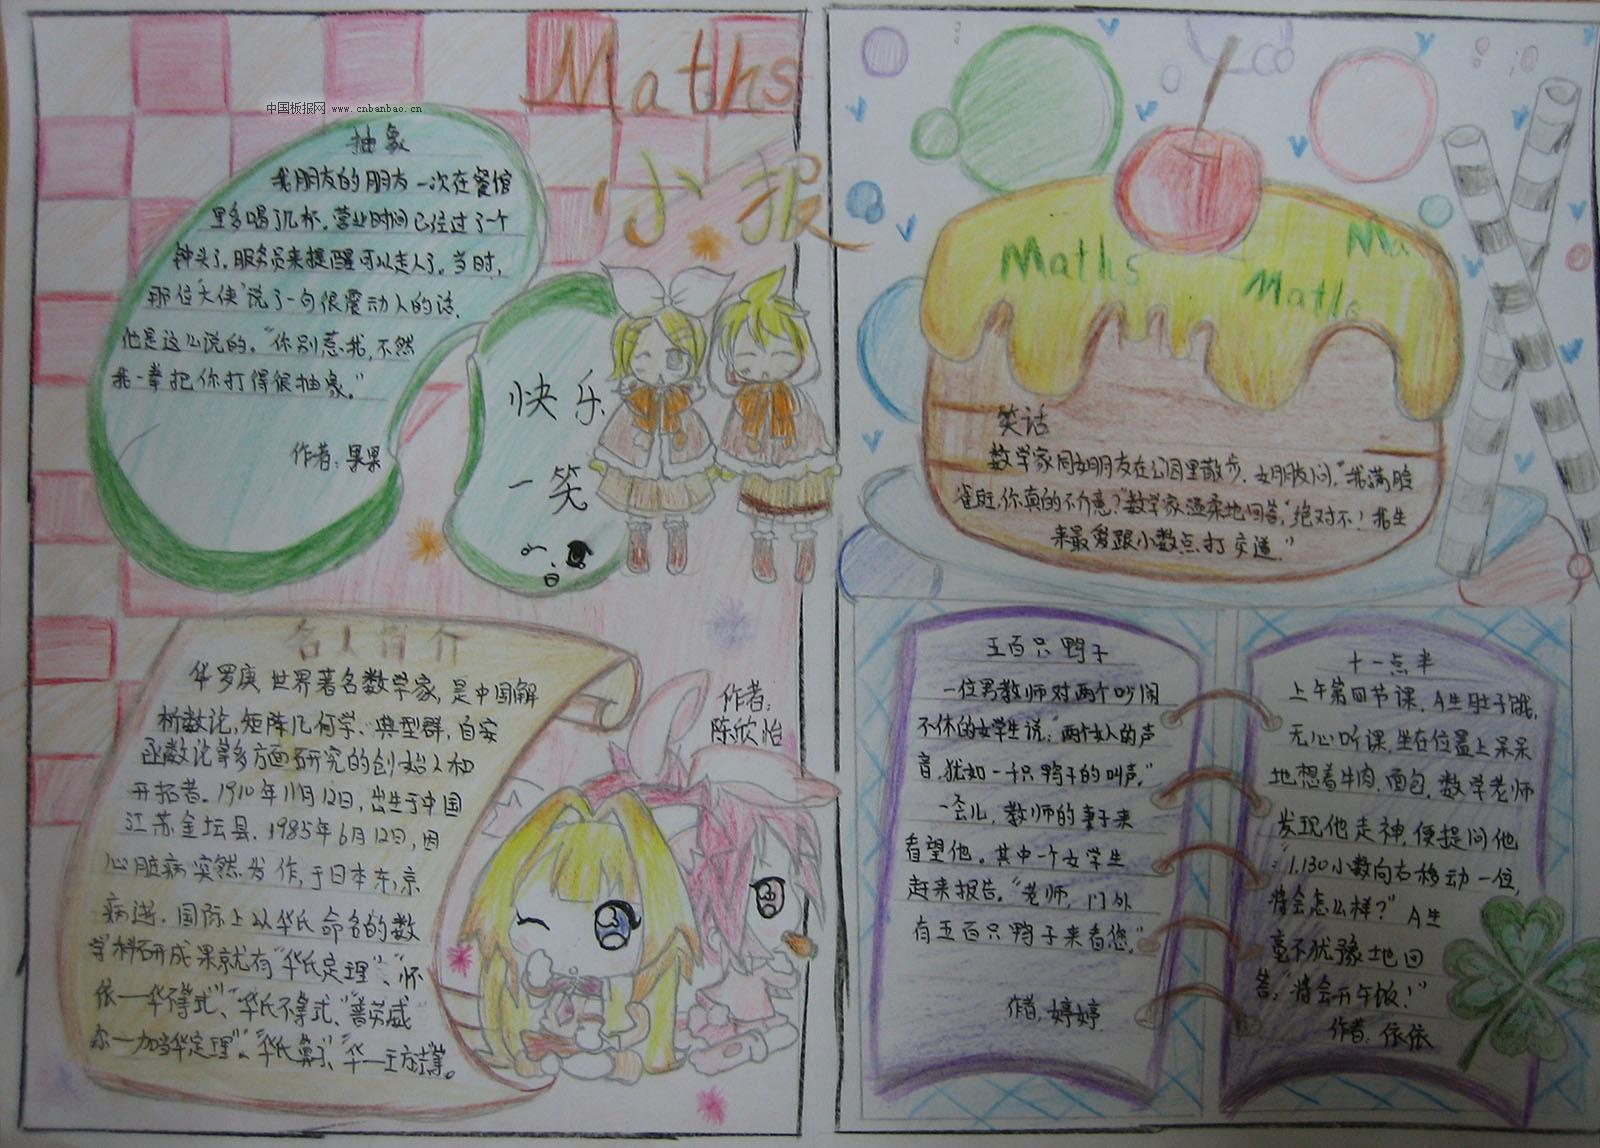 中国板报网 www.cnbanbao.cn
Maths
小报
抽象
我朋友的朋友一次在餐馆
里多喝了几杯。营业时间已经过了一个
钟头了。服务员来提醒可以走人了。当时,
那位"大侠"说了一句很震动人的话.
他是这么说的。"你别惹我,不然
我一拳把你打得很抽象。"
作者:果果
快乐
一笑
名人简介
华罗庚 世界著名数学家,是中国解
析数论,矩阵几何学、典型群,自安
函数论等多方面研究的创始人和
开拓者。1910年11月12日,出生于中国
江苏金坛县.1985年6月12日,因
心脏病突然发作,于日本东京
病逝.国际上以华氏命名的数
学科研成果就有"华氏定理"、"怀
依一华不等式"、"华氏不等式"、"普劳威
尔一加当华定理"、"华氏算子"、"华—王方法"等。
作者:
陈欣怡
Maths
Maths
Ma
笑话
数学家同女朋友在公园里散步.女朋友问,"我满脸
雀斑,你真的不介意?"数学家温柔地回答,"绝对不!我生
来最爱跟小数点打交道."
五百只鸭子
一位男教师对两个吵闹
不休的女学生说:"两个女人的声
音,犹如一千只鸭子的叫声."
一会儿,教师的妻子来
看望他。其中一个女学生
赶来报告。"老师,门外
有五百只鸭子来看您."
作者,婷婷
十一点半
上午第四节课,A生肚子饿,
无心听课,坐在位置上呆呆
地想着牛肉、面包.数学老师
发现他走神,便提问他
:"1.130小数向右移动一位,
将会怎么样?"A生
毫不犹豫地回
答,"将会开午饭!"
作者:依依